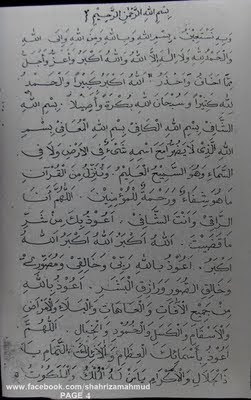 بِسْمِ اللهِ الرَّحْمٰنِ الرَّحِيْمِ
وَبِهِ نَسْتَعِيْنُ، بِسْمِ اللهِ وَبِاللهِ وَمِنَ اللهِ وَاِلَى اللهِ
وَالْحَمْدُ لِلّٰهِ وَلَا اِلٰهَ اِلَّا اللهُ وَاللهُ اَكْبَرُ وَاَعَزُّ وَاَجَلُّ
مِمَّا اَخَافُ وَاَحْذَرُ اَللهُ اَكْبَرُ كَبِيْرًا وَالْحَمْدُ
لِلّٰهِ كَثِيْرًا وَسُبْحَانَ اللهِ بُكْرَةً وَاَصِيْلًا بِسْمِ اللهِ
الشَّافِى بِسْمِ اللهِ الْكَافِى بِسْمِ اللهِ الْمُعَافِى بِسْمِ
اللهِ الَّذِى لَا يَضُرُّ مَعَ اسْمِهِ شَىْءٌ فِى الْاَرْضِ وَلَا فِى
السَّمَاءِ وَهُوَ السَّمِيْعُ الْعَلِيْمُ وَنُنَزِّلُ مِنَ الْقُرْاٰنِ
مَا هُوَ شِفَاءٌ وَرَحْمَةٌ لِلْمُؤْمِنِيْنَ اَللّٰهُمَّ اَنَا
الرَّاقِى وَاَنْتَ الشَّافِى اَعُوْذُ بِكَ مِنْ شَرِّ
مَا قَضَيْتَ اَللهُ اَكْبَرُ اَللهُ اَكْبَرُ اَللهُ
اَكْبَرُ اَعُوْذُ بِاللهِ رَبِّى وَخَالِقِى وَمُصَوِّرِى
وَخَالِقِ الصُّوَرِ وَرَازِقِ الْبَشَرِ اَعُوْذُ بِاللهِ
مِنْ جَمِيْعِ الْاٰفَاتِ وَالْعَاهَاتِ وَالْبَلَاءِ وَالْاَمْرَاضِ
وَالْاَسْقَامِ وَالْكَسَلِ وَ اَللّٰهُمَّ
اَعُوْذُ بِاَسْمَائِكَ الْعِظَامِ التَّمَامِ يَا
ذَا الْجَلَالِ وَالْاِكْرَامِ يَا مَنْ لَهُ الْمُلْكُ وَالْمَلَكُوْتُ
www.facebook.com/shahrizamahmud
PAGE 4